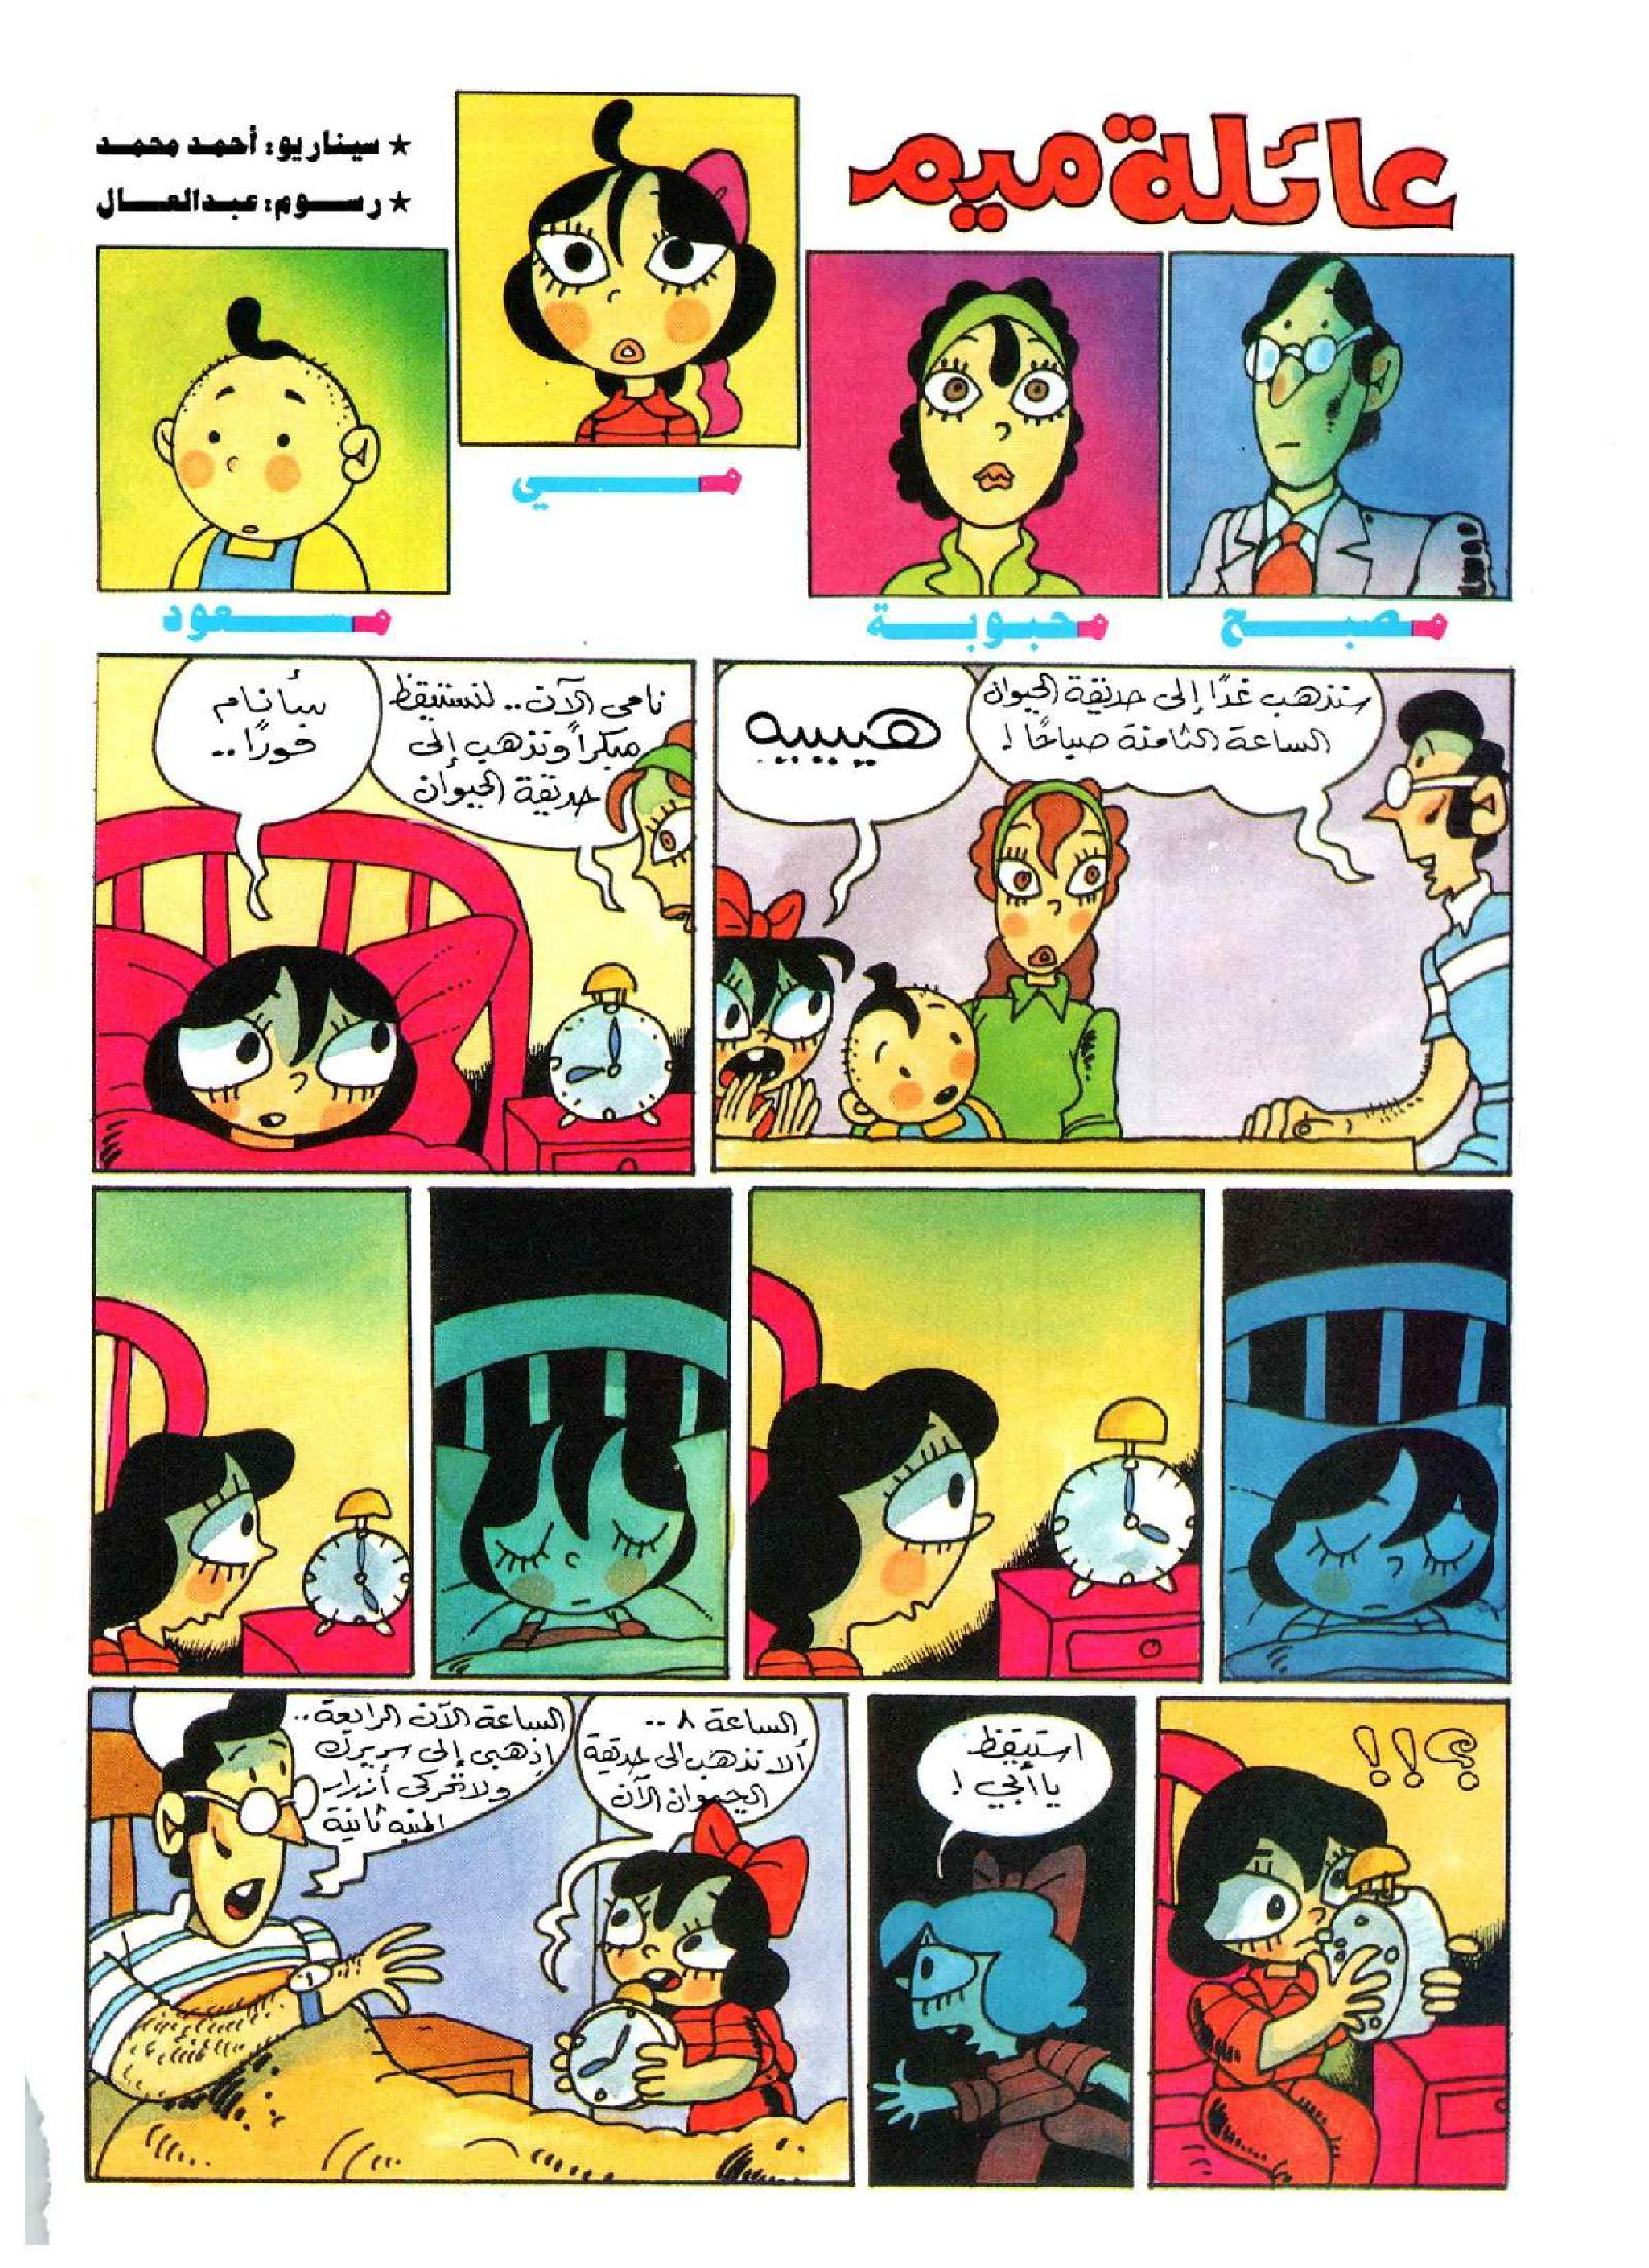 عائلة ميم
★ سيناريو: أحمد محمد
★ رسوم: عبدالعال
مصبح
محبوبة
مي
مسعود
سنذهب غدًا إلى حديقة الحيوان
الساعة الثامنة صباحًا !
هيييييه
نامي الآن.. لنستيقظ
مبكرًا ونذهب إلى
حديقة الحيوان
سأنام
فورًا..
؟!!
استيقظ
يا أبي !
الساعة ٨ ..
ألا نذهب إلى حديقة
الحيوان الآن
الساعة الآن الرابعة..
إذهبي إلى سريرك
ولا تحركي أزرار
المنبه ثانية